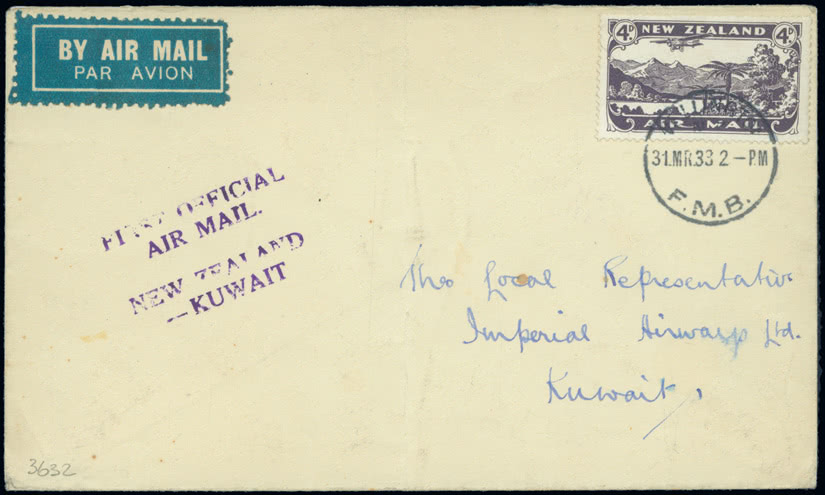 BY AIR MAIL
PAR AVION
4D NEW ZEALAND 4D
AIR MAIL
31.MR.33 2-PM
F.M.B.
FIRST OFFICIAL
AIR MAIL.
NEW ZEALAND
—KUWAIT
The Local Representative
Imperial Airways Ltd.
Kuwait,
3632